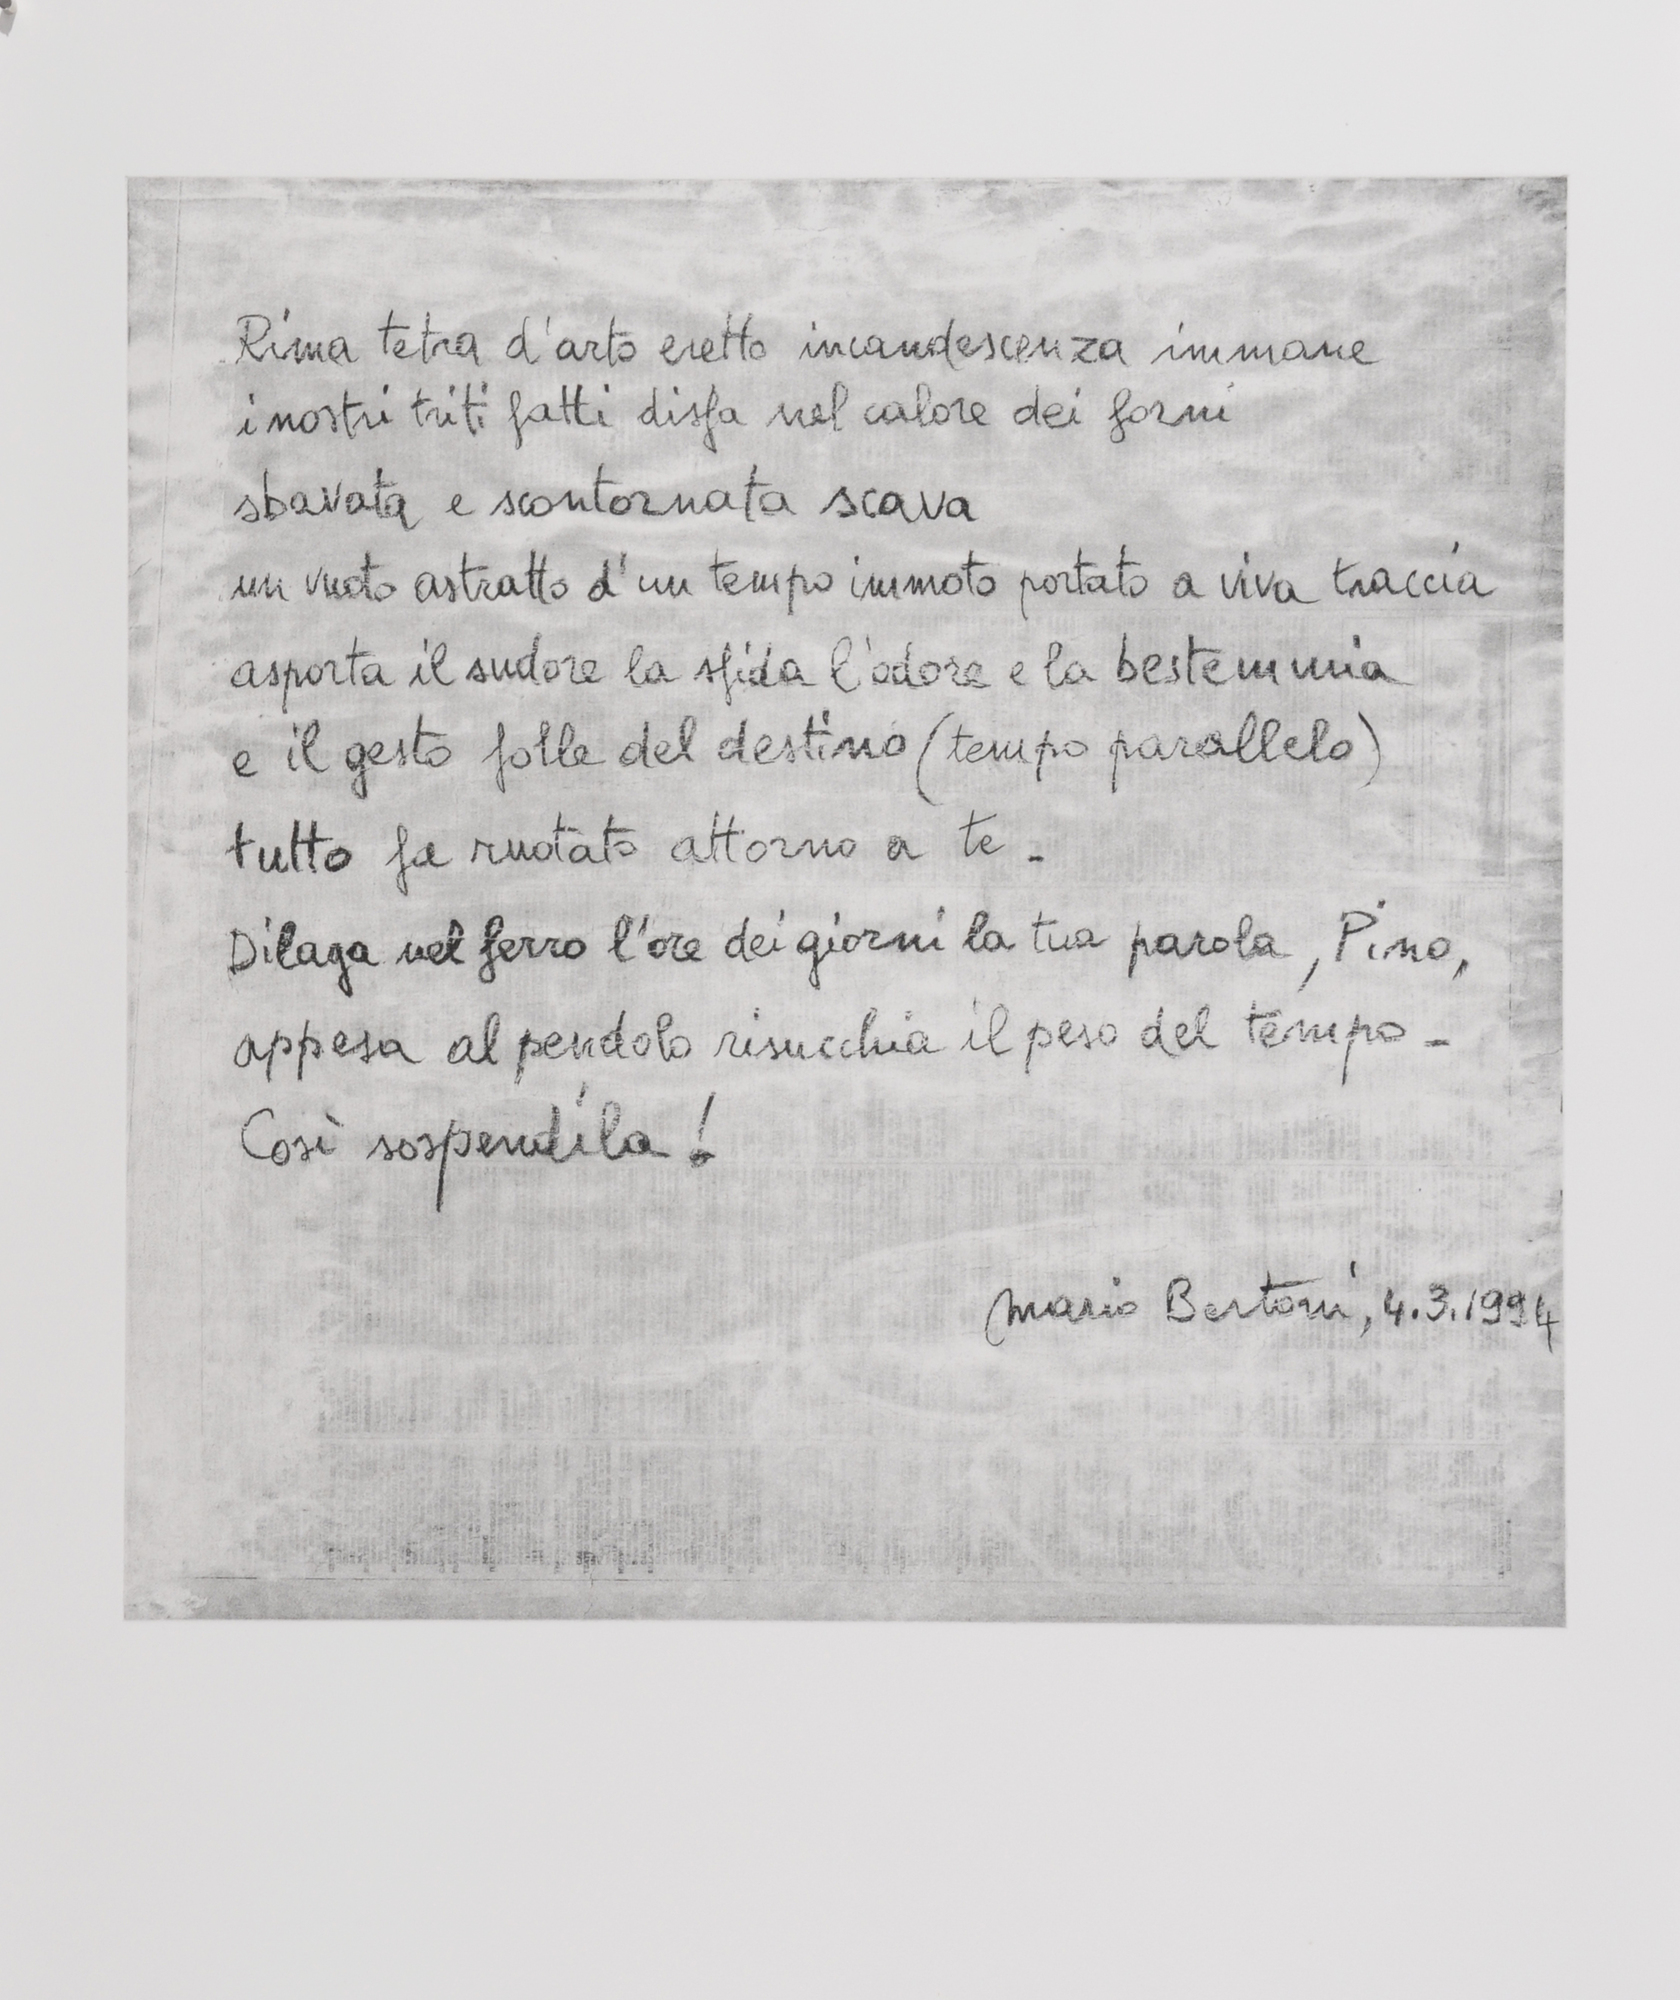 Rima tetra d'arto eretto incandescenza immane
i nostri triti fatti disfa nel calore dei forni
sbavata e scontornata scava
un vuoto astratto d'un tempo immoto portato a viva traccia
asporta il sudore la sfida l'odore e la bestemmia
e il gesto folle del destino (tempo parallelo)
tutto fa ruotato attorno a te -
Dilaga nel ferro l'ore dei giorni la tua parola, Pino,
appesa al pendolo risucchia il peso del tempo -
Così sospendila!
Mario Bertoni, 4.3.1994